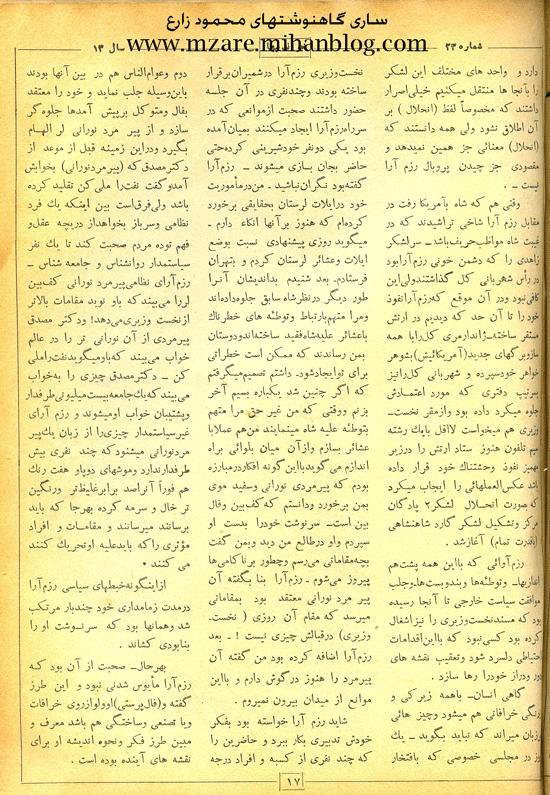 ساری گاهنوشتهای محمود زارع
www.mzare.mihanblog.com
شماره ۲۳
سال ۱۳
دارد و واحد های مختلف این لشکر
را بآنجا ها منتقل میکنیم خیلی اصرار
داشتند که مخصوصاً لفظ (انحلال) بر
آن اطلاق نشود ولی همه دانستند که
(انحلال) معنائی جز همین نمیدهد و
مقصودی جز چیدن پروبال رزم آرا
نیست .
وقتی هم که شاه بآمریکا رفت در
مقابل رزم آرا شاخی تراشیدند که در
غیبت شاه مواظب حریف باشد ـ سرلشکر
زاهدی را که دشمن خونی رزم آرا بود
در رأس شهربانی کل گذاشتند ولی این
کافی نبود و در آن موقع که رزم آرا نفوذ
خود را تا آن حد که دیدیم در ارتش
مستقر ساخته ـ ژاندارمری کل را با همه
ساز و برگهای جدید (آمریکائیش) بشوهر
خواهر خود سپرده و شهربانی کل را نیز
بسرتیپ دفتری که مورد اعتمادش
جلوه میکرد داده بود و از مقر نخست ـ
وزیری هم میخواست لااقل با یک رشته
سیم تلفون هنوز ستاد ارتش را در زیر
مهمیز نفوذ وحشتناک خود قرار داده
باشد عکس العملهائی را ایجاب میکرد
که بصورت انحلال لشکر ۲ پادگان
مرکز و تشکیل لشکر گارد شاهنشاهی
(باقدرت تمام) آغاز شد .
رزم آرائی که با این همه پشت هم
اندازیها ـ و توطئه ها و بندوبست ها ـ و جلب
موافقت سیاست خارجی تا آنجا رسیده
بود که مسند نخست وزیری را نیز اشغال
کرده بود کسی نبود که با این اقدامات
احتیاطی دلسرد شود و تعقیب نقشه های
دور و دراز خود را رها سازد .
گاهی انسان ـ با همه زیرکی و
زرنگی خرافاتی هم میشود و چیز هائی
بزبان میراند که نباید بگوید ـ یک
روز در مجلسی خصوصی که بافتخار
نخست وزیری رزم آرا در شمیران برقرار
ساخته بودند و چند نفری در آن جلسه
حضور داشتند صحبت از موانعی که در
سر راه رزم آرا ایجاد میکنند بمیان آمده
بود یکی دو نفر خودشیرینی کرده حتی
حاضر بجان بازی میشوند ـ رزم آرا
گفته بود نگران نباشید ـ من در مأموریت
خود در ایلات لرستان بحقایقی برخورد
کرده ام که هنوز بر آنها اتکاء دارم ـ
میگوید روزی پیشنهادی نسبت بوضع
ایلات و عشائر لرستان کردم و بتهران
فرستادم ـ بعد شنیدم بداندیشان آنرا
طور دیگر در نظر شاه سابق جلوه داده اند
و مرا متهم بارتباط و توطئه های خطرناک
با عشائر علیه شاه فقید ساخته اند و دوستان
بمن رساندند که ممکن است خطراتی
برای تو ایجاد شود ـ داشتم تصمیم میگرفتم
که اگر چنین شد یکباره بسیم آخر
بزنم و وقتی که من غیر حق مرا متهم
بتوطئه علیه شاه مینمایند من هم عملا با
عشائر بسازم و از آن میان بلوائی براه
اندازم می گوید با این گونه افکار در مبارزه
بودم که پیرمردی نورانی و سفید موی
بمن برخورد و دانستم که کف بین و فال
بین است ـ سرنوشت خود را بدست او
سپردم و او در طالع من دید و بمن گفت
بچه مقاماتی می رسم و چطور بر ناکامی ها
پیروز می شوم ـ رزم آرا بنا بگفته آن
پیر مرد نورانی معتقد بود بمقاماتی
میرسد که مقام آن روزی (نخست ـ
وزیری) در قبالش چیزی نیست ! ـ بعد
رزم آرا اضافه کرده بود من گفته آن
پیرمرد را هنوز در گوش دارم و با این
موانع از میدان بیرون نمیروم .
شاید رزم آرا خواسته بود بفکر
خودش تدبیری بکار ببرد و حاضرین را
که چند نفری از کسبه و افراد درجه
دوم و عوام الناس هم در بین آنها بودند
باین وسیله جلب نماید و خود را معتقد
بفال و متوکل بر پیش آمدها جلوه گر
سازد و از پیر مرد نورانی لر الهام
بگیرد و در این زمینه قبل از موعد از
دکتر مصدق که (پیر مرد نورانی) بخوابش
آمد و گفت نفت را ملی کن تقلید کرده
باشد ولی فرق است بین اینکه یک فرد
نظامی و سرباز بخواهد از دریچه عقل و
فهم توده مردم صحبت کند تا یک نفر
سیاستمدار روانشناس و جامعه شناس ـ
رزم آرای نظامی پیرمرد نورانی کف بین
لر را می بیند که باو نوید مقامات بالاتر
از نخست وزیری می دهد! و دکتر مصدق
پیرمردی از آن نورانی تر را در عالم
خواب می بیند که باو میگوید نفت را ملی
کن ـ دکتر مصدق چیزی را به خواب
می بیند که یک جامعه بیست میلیونی طرفدار
و پشتیبان خواب او میشوند و رزم آرای
غیر سیاستمدار چیزی را از زبان یک پیر
مرد نورانی میشنود که چند نفری بیش
طرفدار ندارد و موشهای دو پا و هفت رنگ
هم فوراً آنرا صد برابر غلیظ تر و رنگین
تر خال و سرمه کرده بهر جا که باید
برسانند میرسانند و مقامات و افراد
مؤثری را که باید علیه او تحریک کنند
می کنند .
از اینگونه خبطهای سیاسی رزم آرا
در مدت زمامداری خود چندبار مرتکب
شد و همانها بود که سرنوشت او را
بنابودی کشاند .
بهرحال ـ صحبت از آن بود که
رزم آرا مأیوس شدنی نبود و این طرز
گفته و (فال پرستی) او ولو از روی خرافات
و یا تصنعی و ساختگی هم باشد معرف و
مبین طرز فکر و نحوه اندیشه او برای
نقشه های آینده بوده است .
۱۷